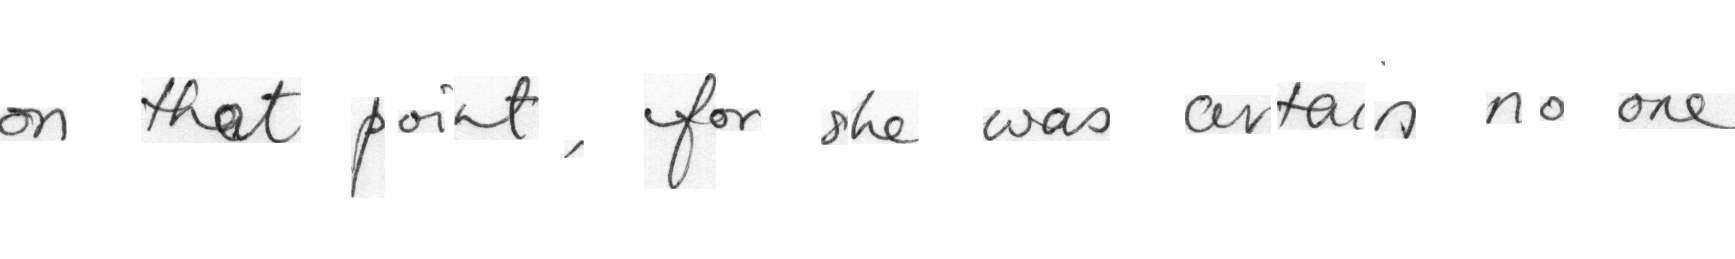 on that point, for she was certain no one